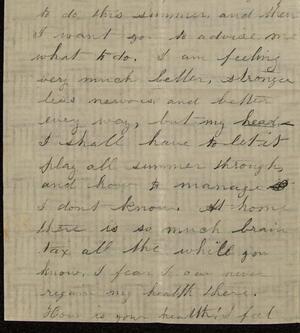 to do this summer, and then
I want you to advise me
what to do. I am feeling
very much better, stronger
less nervous and better
every way, but my head
I shall have to let it
play all summer through,
and how to manage
I don't know. At home
there is so much brain
tax all the while you
know, I fear I can never
regain my health there.
How is your health? I feel